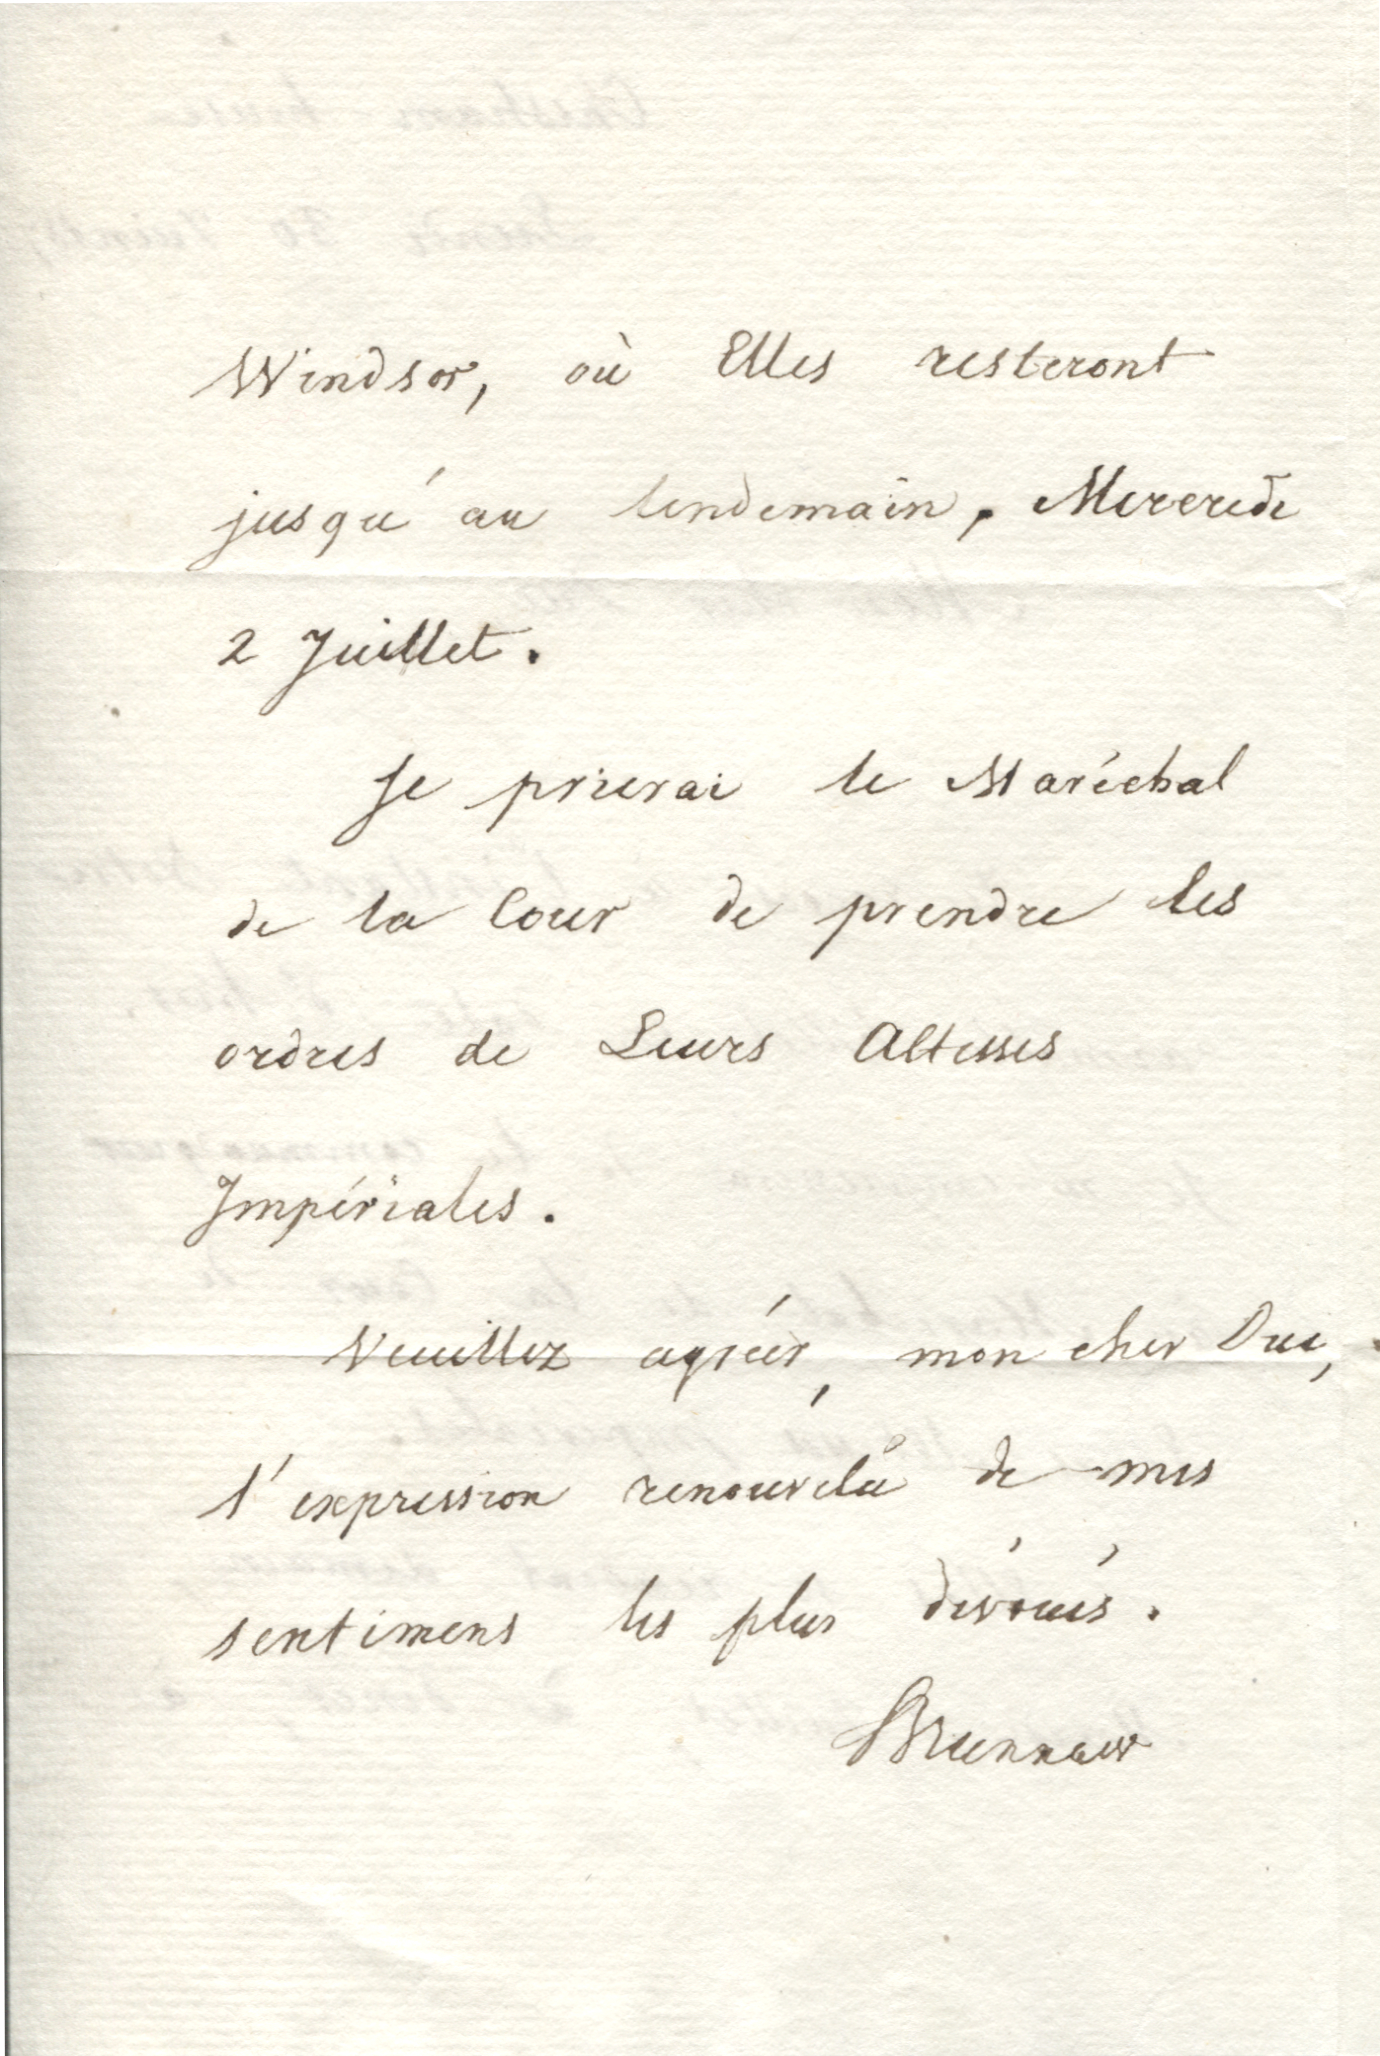 Windsor, où Elles resteront
jusqu'au lendemain, Mercredi
2 Juillet.
Je prierai le Maréchal
de la Cour de prendre les
ordres de Leurs Altesses
Impériales.
Veuillez agréer, mon cher Duc,
l'expression renouvelée de mes
sentimens les plus dévoués.
Brunnow